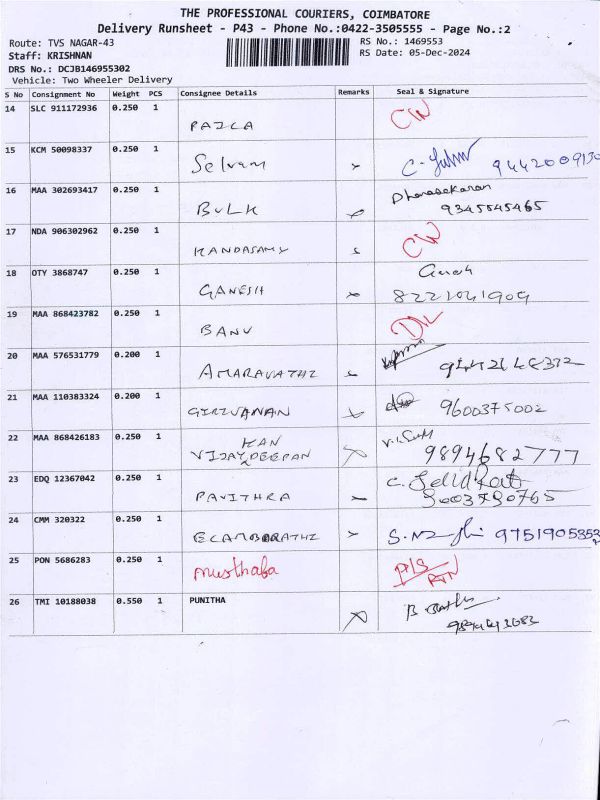 THE PROFESSIONAL COURIERS, COIMBATORE
Delivery Runsheet - P43 - Phone No.:0422-3505555 - Page No.:2
Route: TVS NAGAR-43 RS No.: 1469553
Staff: KRISHNAN RS Date: 05-Dec-2024
DRS No.: DCJB146955302
Vehicle: Two Wheeler Delivery
S No Consignment No Weight PCS Consignee Details Remarks Seal & Signature
14 SLC 911172936 0.250 1 CW
15 KCM 50098337 0.250 1 Selvam
16 MAA 302693417 0.250 1 BULK Dhanasekaran
9345545465
17 NDA 906302962 0.250 1 KANDASAMY CW
18 OTY 3868747 0.250 1 GANESH
19 MAA 868423782 0.250 1 BANU DL
20 MAA 576531779 0.200 1 AMARAVATHI
21 MAA 110383324 0.200 1 GIRIVANAN 9600375002
22 MAA 868426183 0.250 1 KAN
VIJAYDEEPAN 9894682777
23 EDQ 12367042 0.250 1 PAVITHRA 9003790765
24 CMM 320322 0.250 1
25 PON 5686283 0.250 1 Musthafa
RTN
26 TMI 10188038 0.550 1 PUNITHA